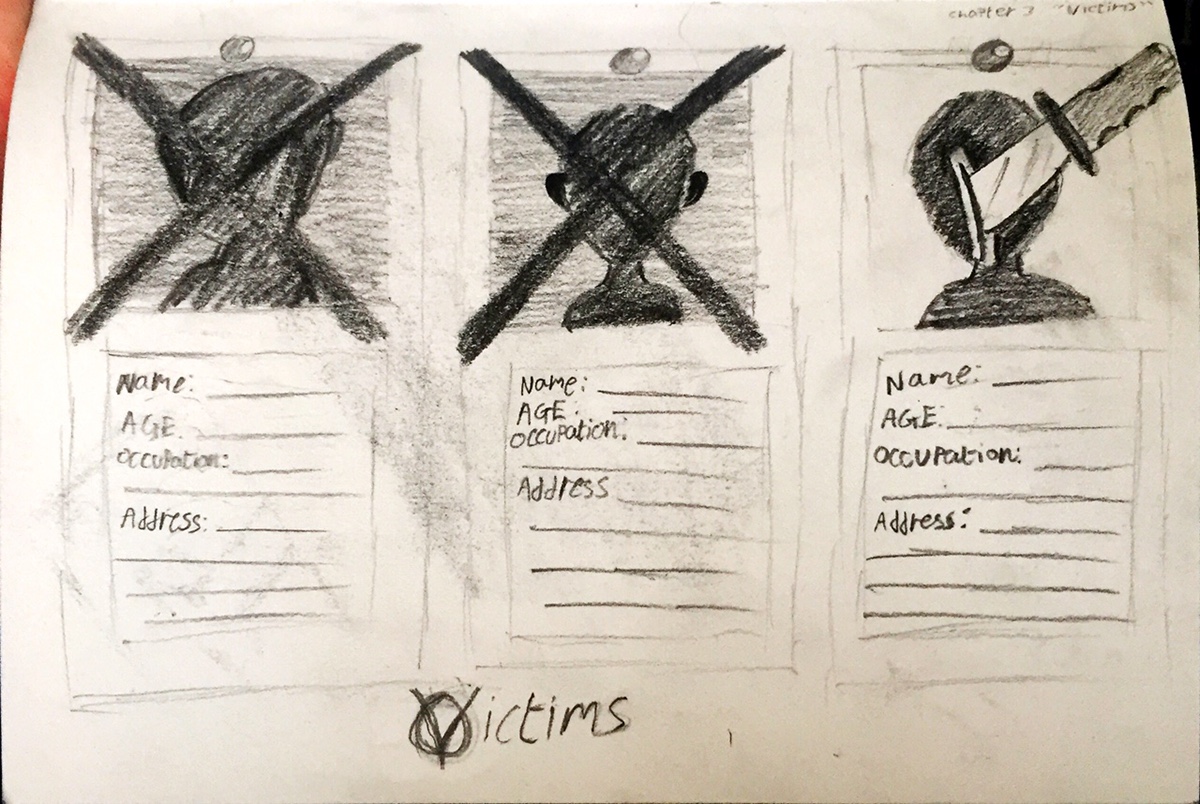 chapter 3 "Victims"
Name:
AGE.
OCCUPation:
Address:
Name:
AGE.
OCCUPation:
Address
Name:
AGE:
OCCUPation:
Address:
Victims